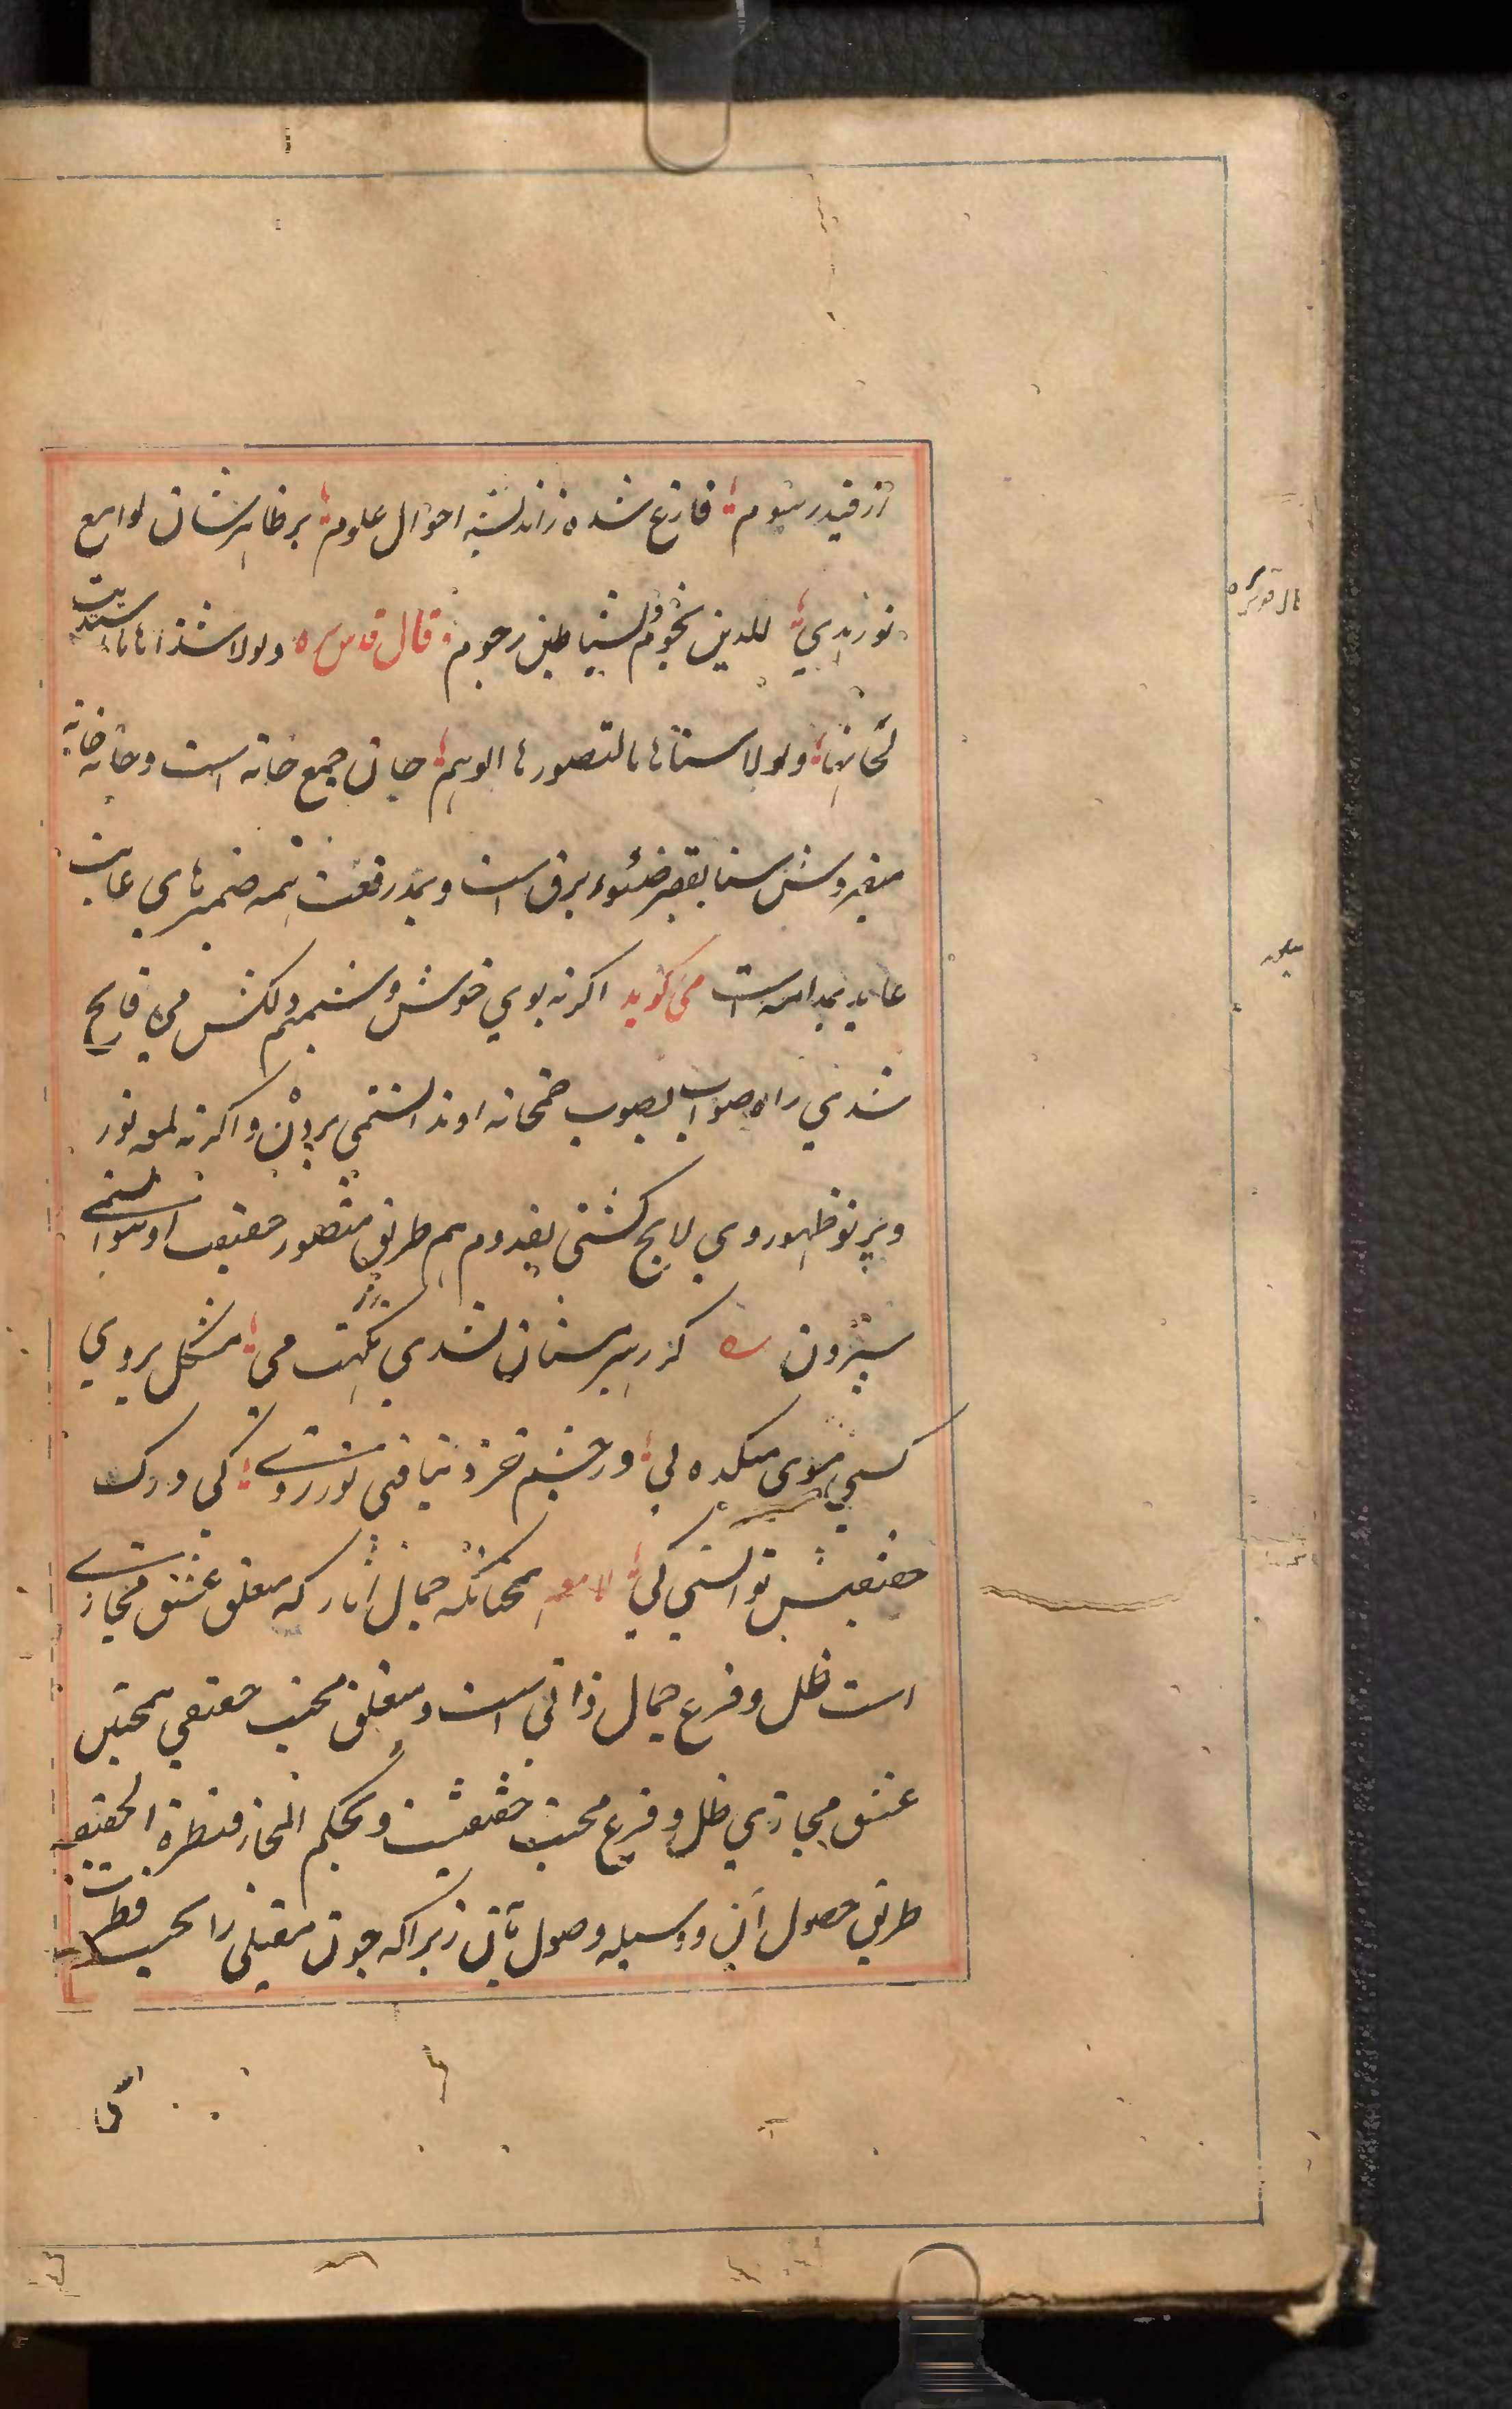 از قید رسوم فارغ شده ز اندیشه احوال علوم بر ظاهرشان لوامع
نور هدی للدین نجوم وللشیاطین رجوم قال قدس سره ولولا شذاها ما اهتدیت
لحانها ولولا سناها ما لتصورها الوهم حان جمع خانه است وخانه خانه
میفروش سنا بقصر ضوء برق است وبمد رفعت همه ضمیرهای غایب
عاید بمدامه است می گوید اکر نه بوی خوش وشمیم دلکش می فایح
شدی راه صواب بصوب خمخانه او ندانستمی بردن واکر نه لمعه نور
وپرتو ظهور وی لایح کشتی بقدوم هم طریق تصور حقیقت او نتوانستمی
سپردن کر رهبر مستان نشدی نکهت می مشکل بردی
کسی سوی میکده پی ور چشم خرد نیافتی نور ز وی کی درک
حقیقتش توانستی کی لامعه همچنانکه جمال آثار که متعلق عشق مجازی
است ظل وفرع جمال ذاتی است ومتعلق محبت حقیقی همچنین
عشق مجازی ظل وفرع محبت حقیقیست وبحکم المجاز قنطرة الحقیقه
طریق حصول آن ووسیله وصول بآن زیرا که چون مقبلی را بحسب فطرت